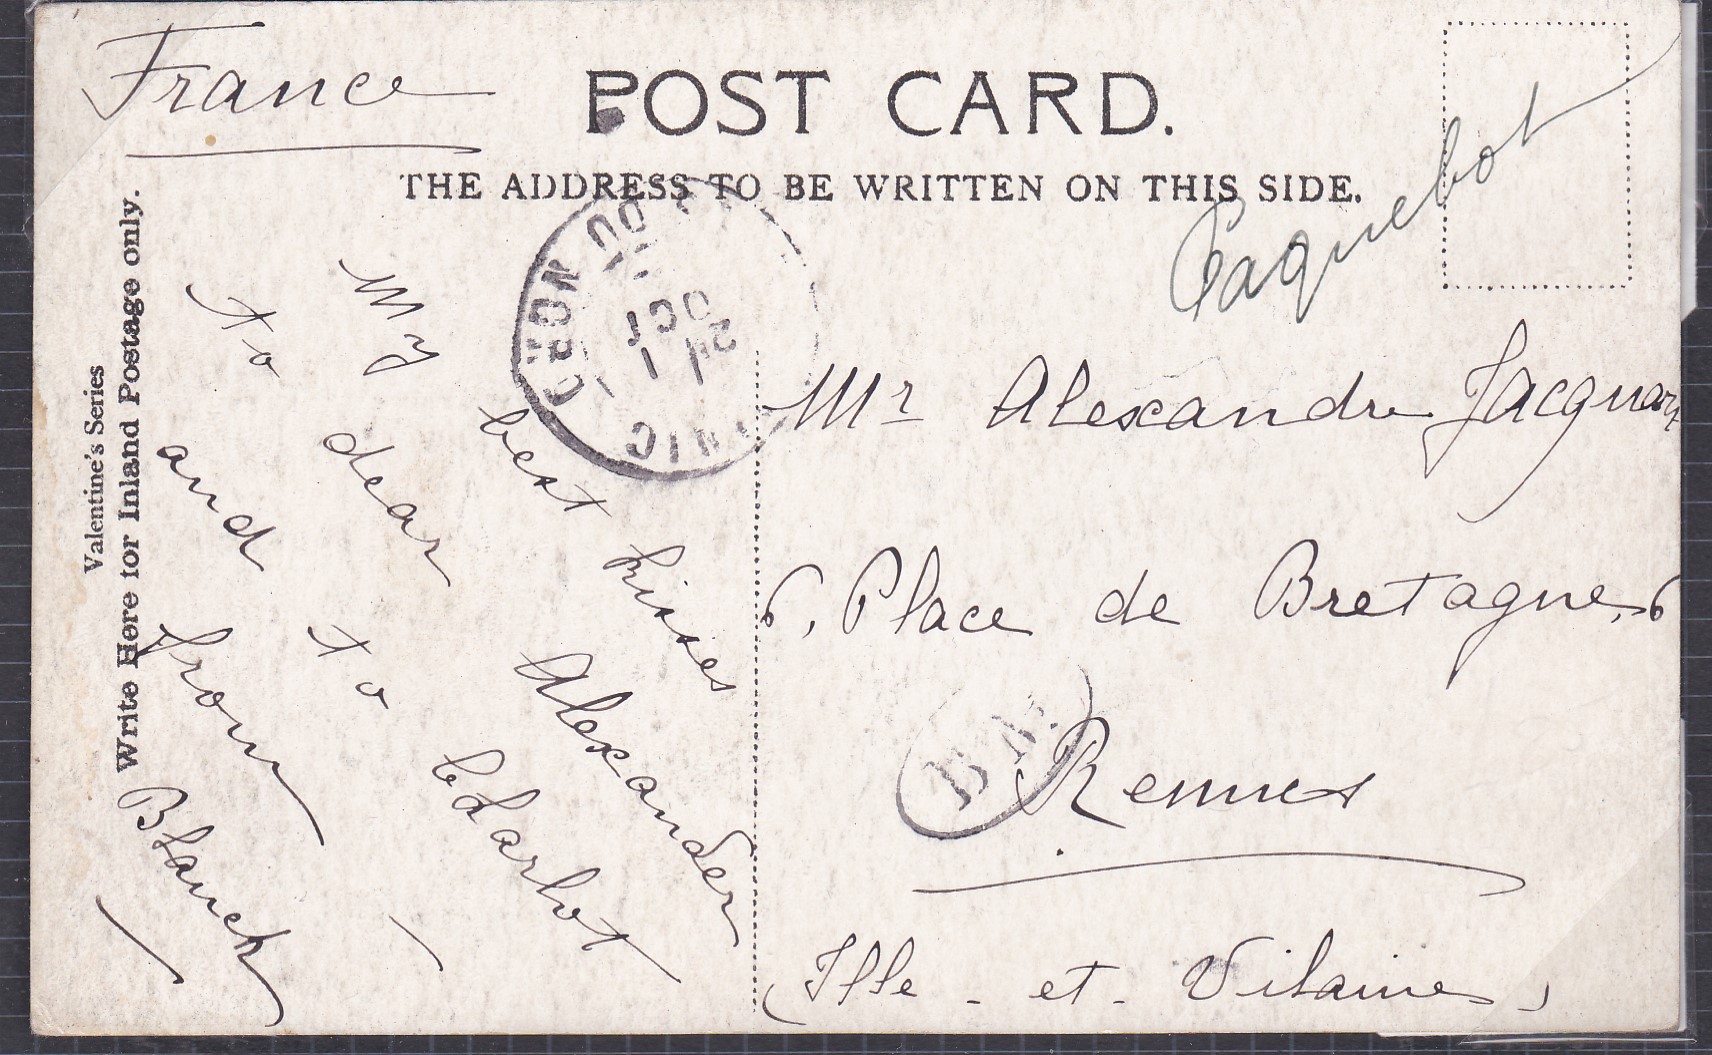 France
POST CARD.
THE ADDRESS TO BE WRITTEN ON THIS SIDE.
Paquebot
Valentine's Series
Write Here for Inland Postage only.
My best kisses
to dear Alexander
and to
from
OCT
Mr Alexandre
6, Place de Bretagne, 6
B.M.
Rennes
(Ille - et - Vilaine)